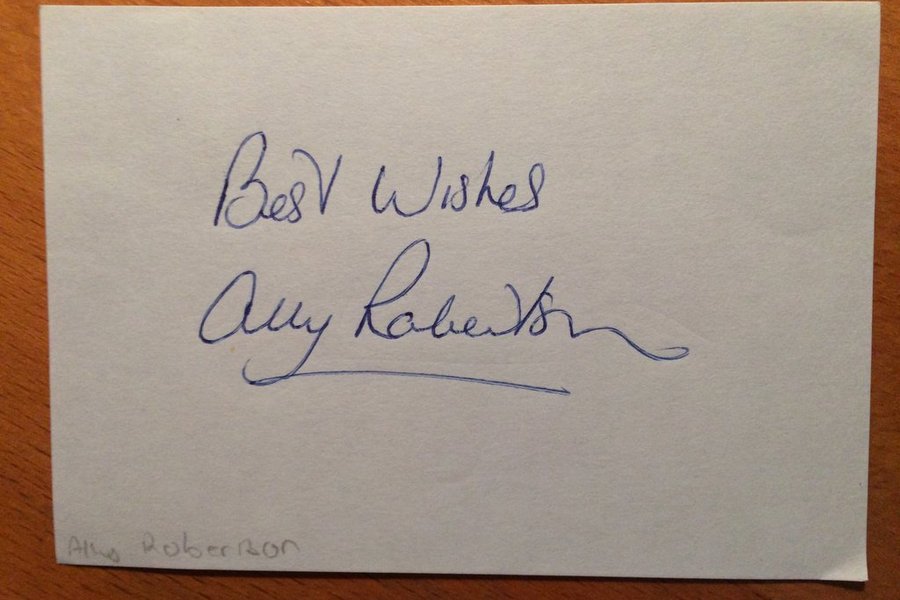 Best Wishes
Ally Robertson
Ally Robertson